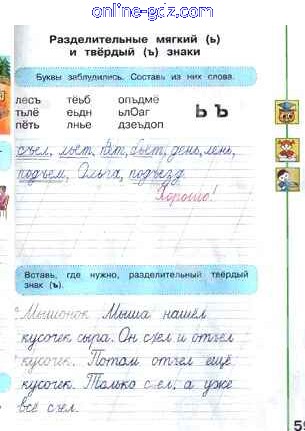 online-gdz.com
Разделительные мягкий (ь)
и твёрдый (ъ) знаки
Буквы заблудились. Составь из них слова.
лесъ тёьб опъдмё
тьлё еьдн ьлОаг
пёть лнье дзеъдоп
Ь Ъ
съел, льёт, бьёт, день, лень,
подъём, Ольга, подъезд.
Хорошо!
Вставь, где нужно, разделительный твёрдый
знак (ъ).
Мышонок Мыша нашёл
кусочек сыра. Он съел и отъел
кусочек. Потом отъел ещё
кусочек. Только с ел, а уже
всё съел.